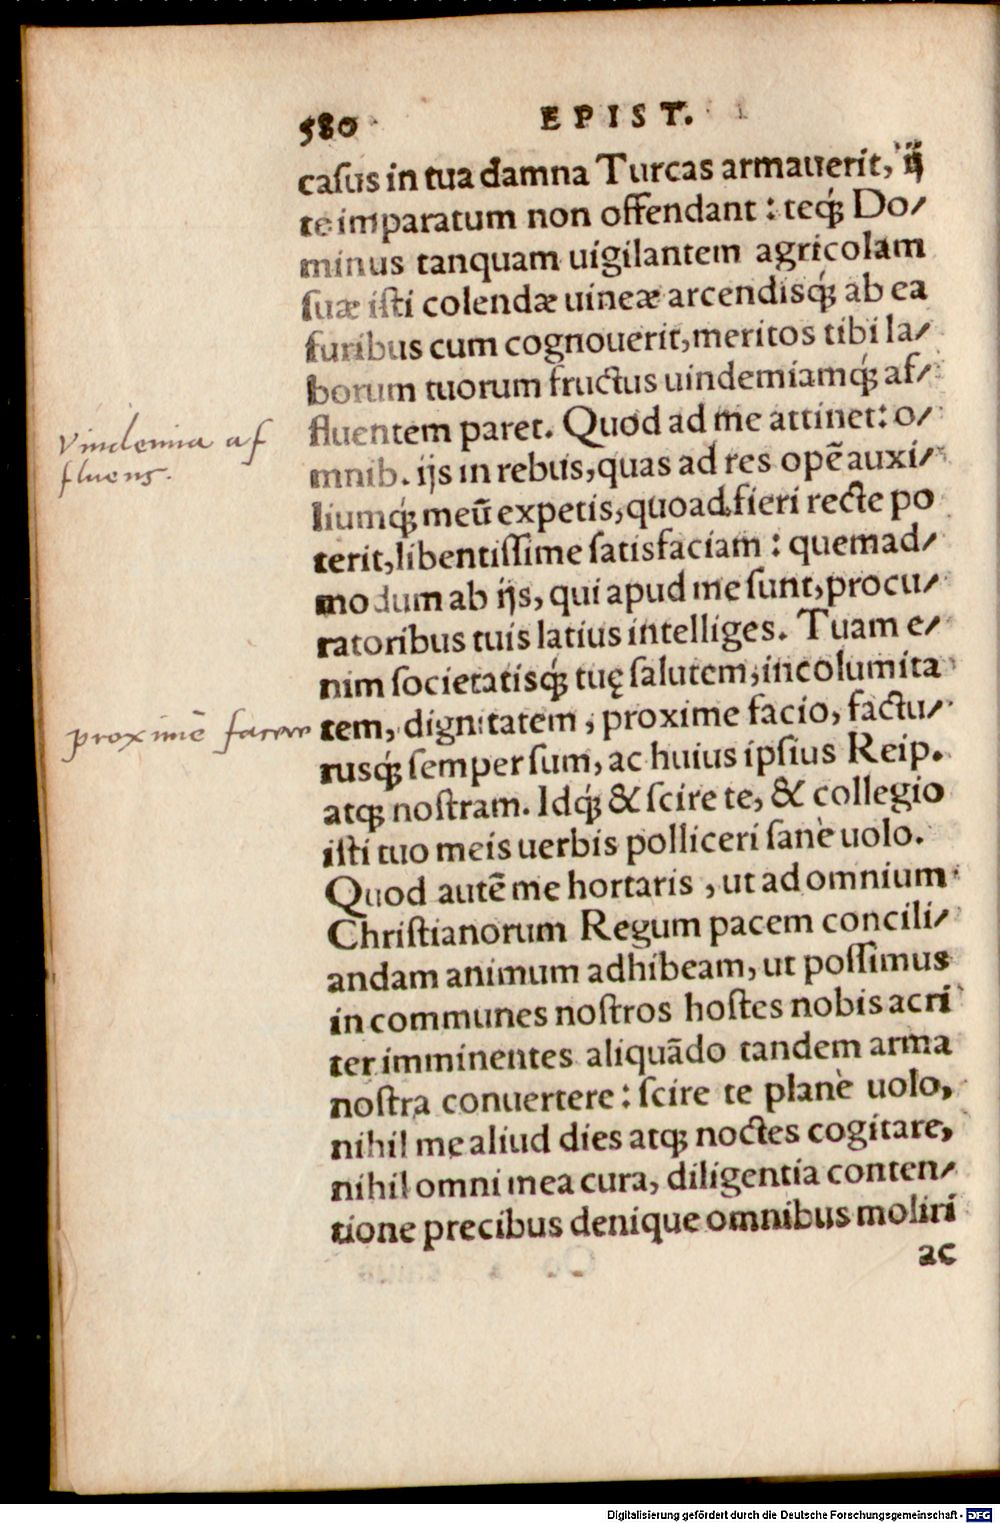 580 EPIST.
casus in tua damna Turcas armauerit, ij
te imparatum non offendant : teq́; Do/
minus tanquam uigilantem agricolam
suæ isti colendæ uineæ arcendisq́; ab ea
furibus cum cognouerit, meritos tibi la/
borum tuorum fructus uindemiamq́; af/
fluentem paret. Quod ad me attinet: o/
mnib. ijs in rebus, quas ad res opẽ auxi/
liumq́; meũ expetis, quoad fieri recte po
terit, libentissime satisfaciam : quemad/
modum ab ijs, qui apud me sunt, procu/
ratoribus tuis latius intelliges. Tuam e/
nim societatisq́; tuę salutem, incolumita
tem, dignitatem, proxime facio, factu/
rusq́; semper sum, ac huius ipsius Reip.
atq; nostram. Idq́; & scire te, & collegio
isti tuo meis uerbis polliceri sanè uolo.
Quod autẽ me hortaris, ut ad omnium
Christianorum Regum pacem concili/
andam animum adhibeam, ut possimus
in communes nostros hostes nobis acri
ter imminentes aliquãdo tandem arma
nostra conuertere : scire te planè uolo,
nihil me aliud dies atq; noctes cogitare,
nihil omni mea cura, diligentia conten/
tione precibus denique omnibus moliri
ac
Vindemia af
fluens.
proximè facere
Digitalisierung gefördert durch die Deutsche Forschungsgemeinschaft - DFG